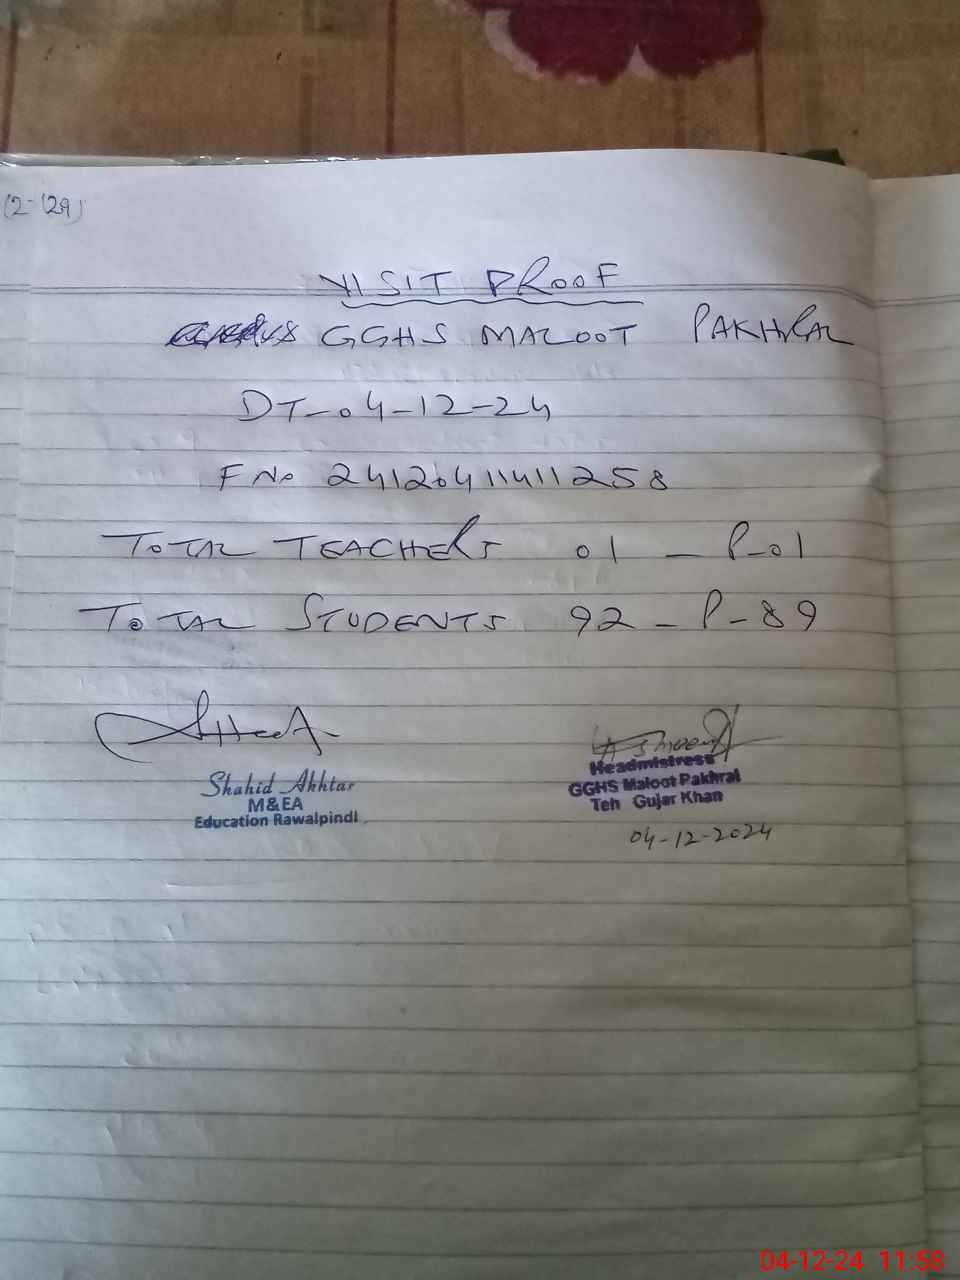 VISIT PROOF
GGHS MALOOT PAKHRAL
DT-04-12-24
F No 24120411411258
TOTAL TEACHERS 01 - P-01
TOTAL STUDENTS 92 - P-89
Shahid Akhtar
M&EA
Education Rawalpindi
Headmistress
GGHS Maloot Pakhral
Teh Gujar Khan
04-12-2024
04-12-24 11:58